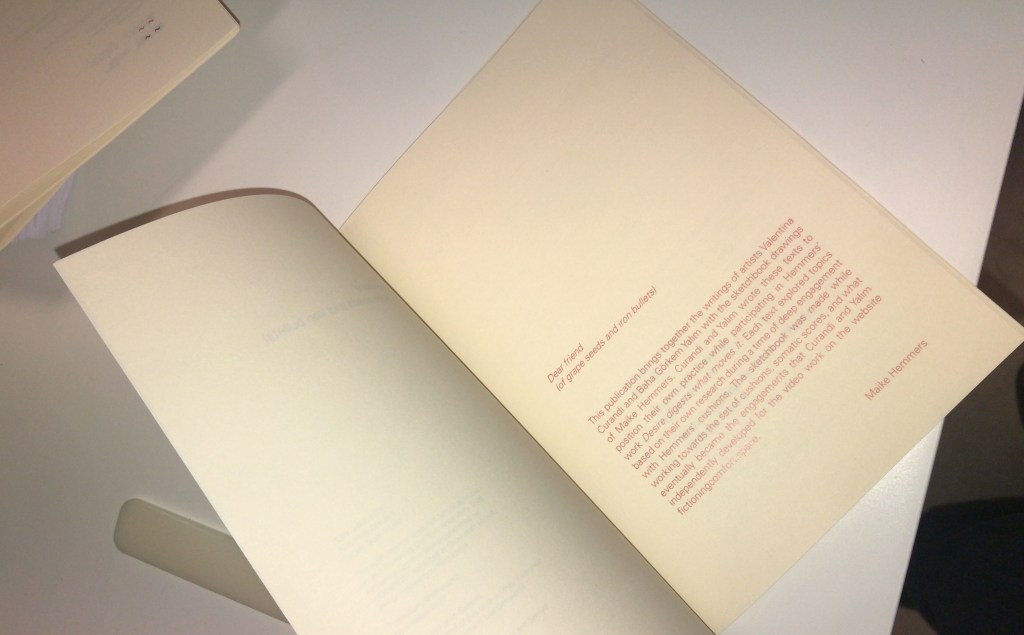 Dear friend
(of grape seeds and iron bullets)
This publication brings together the writings of artists Valentina
Curandi and Baha Görkem Yalım with the sketchbook drawings
of Maike Hemmers. Curandi and Yalım wrote these texts to
position their own practice while participating in Hemmers'
work Desire digests what moves it. Each text explored topics
based on their own research during a time of deep engagement
with Hemmers' cushions. The sketchbook was made while
working towards the set of cushions, somatic scores, and what
eventually became the engagements that Curandi and Yalım
independently developed for the video work on the website
fictioningcomfort.space.
Maike Hemmers